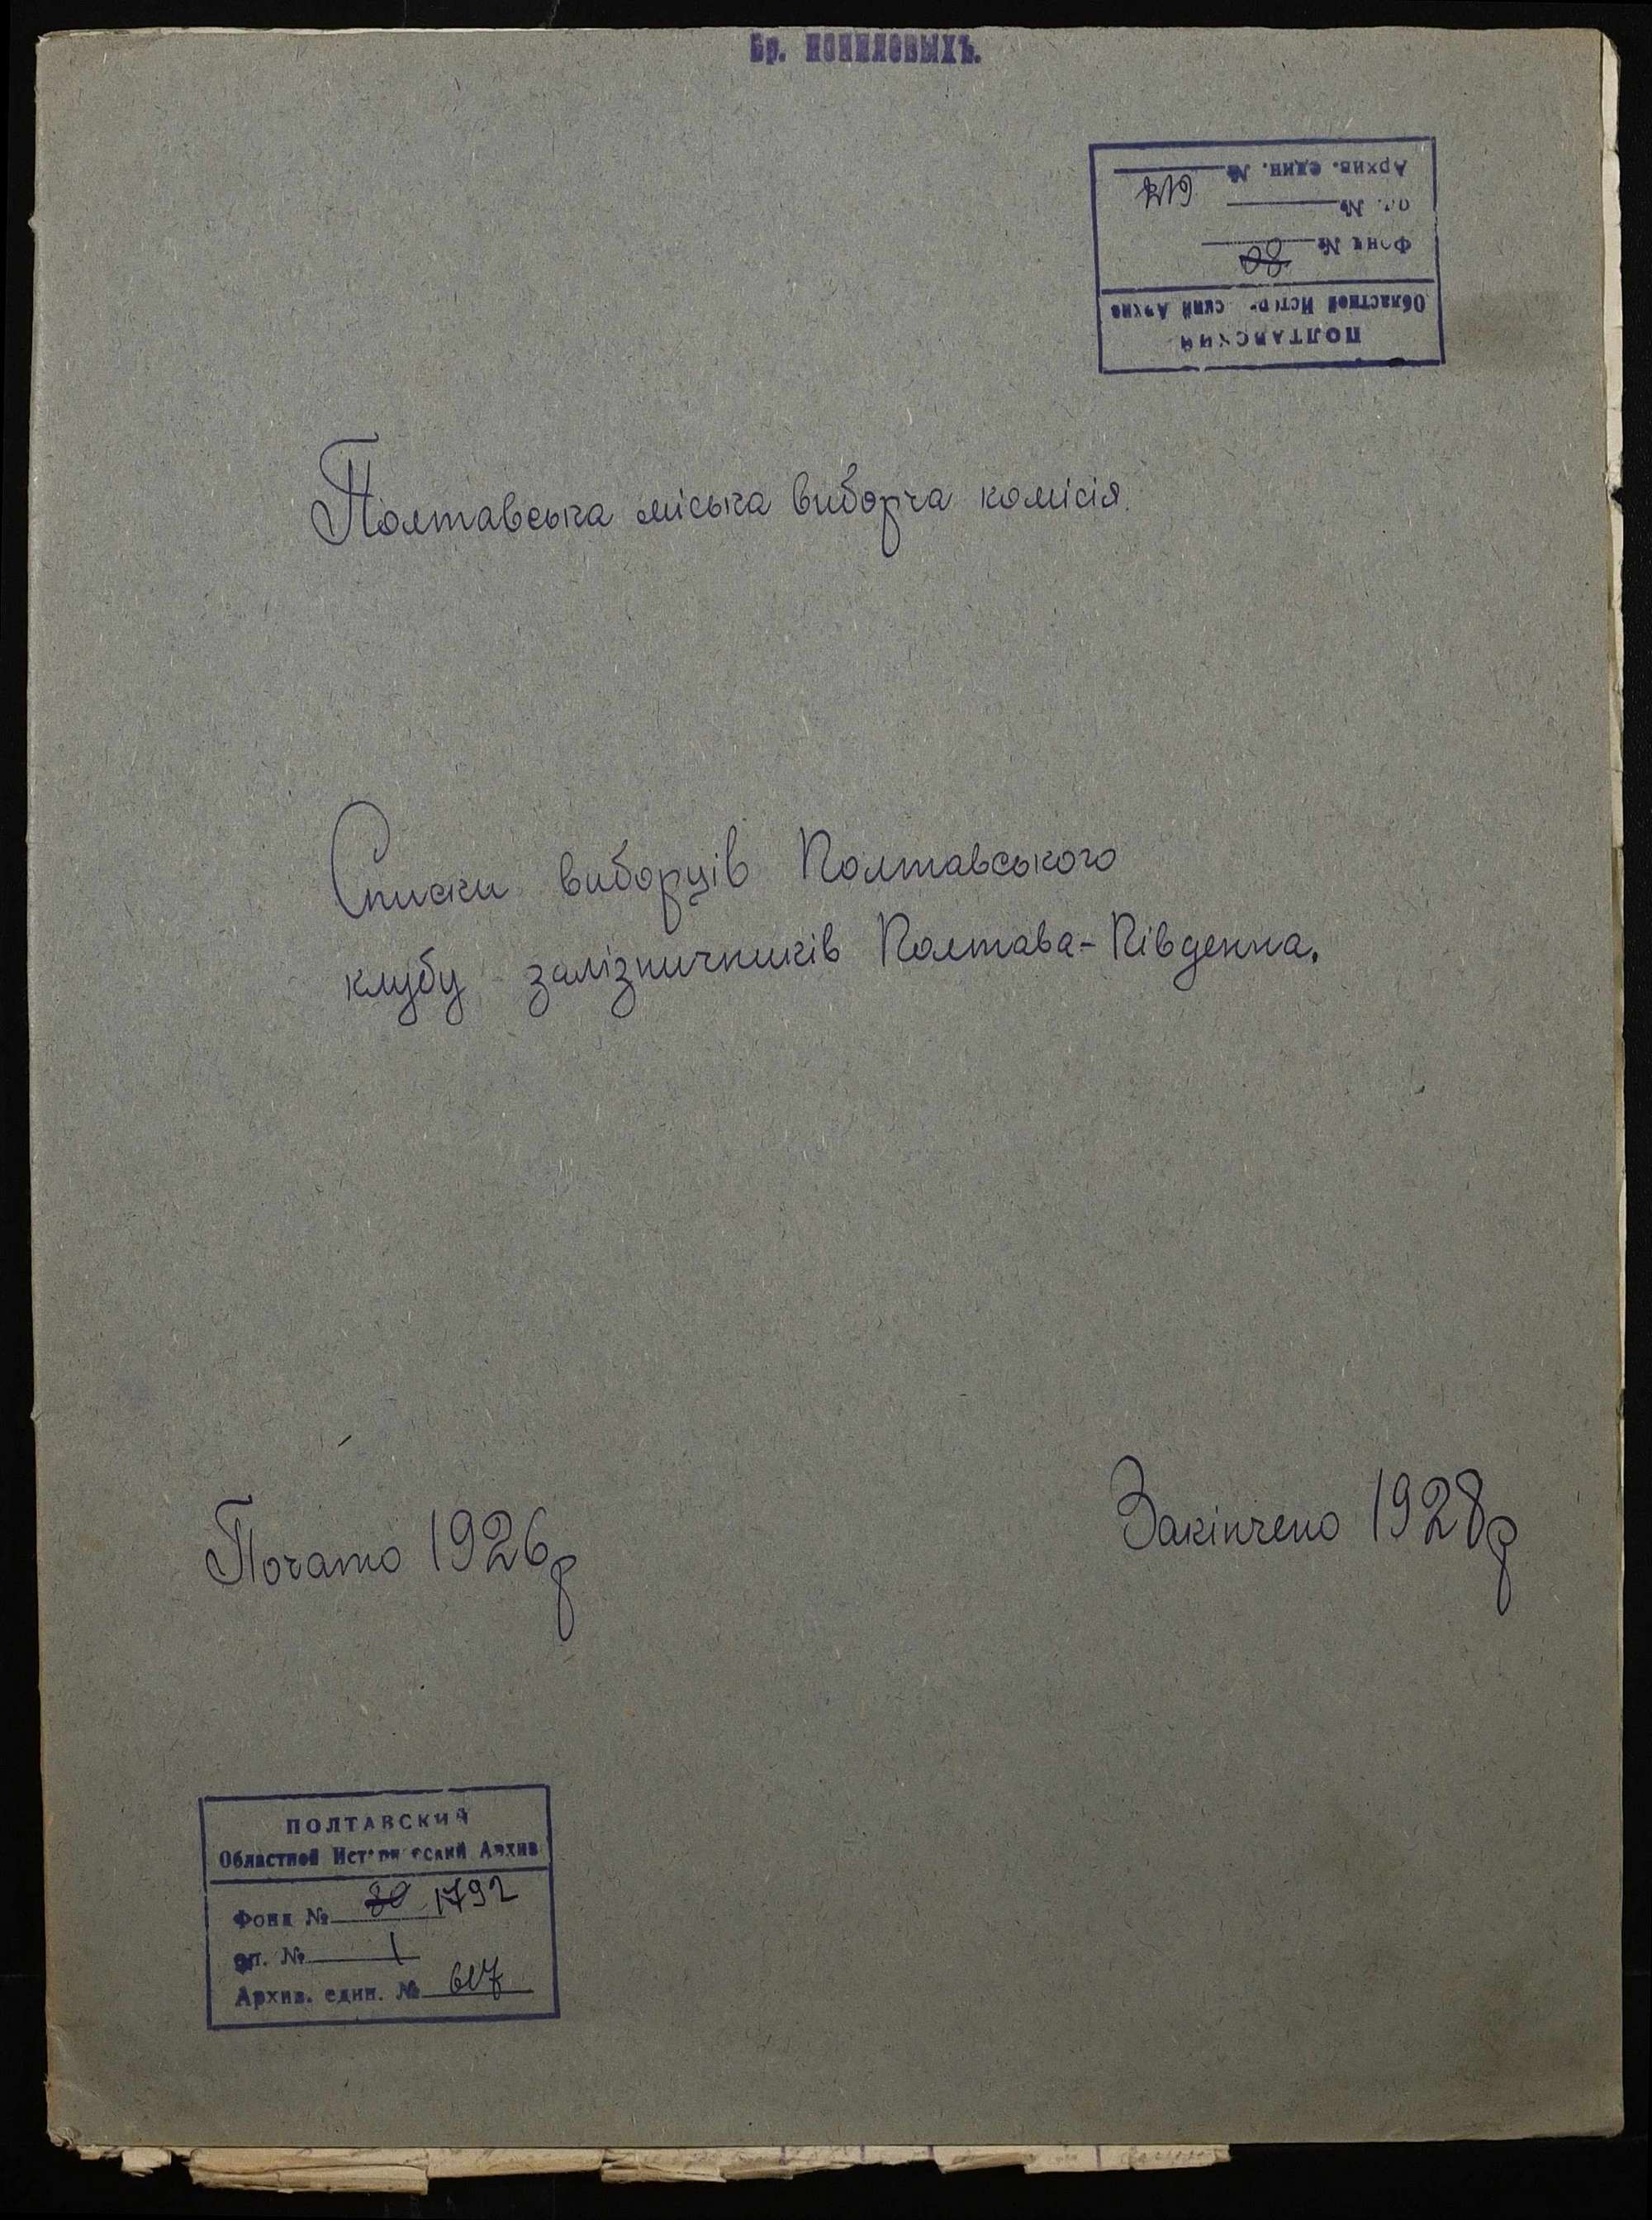 Бр.
Архив. един. №
оп. №
Фонд № 80
Областной Исторический Архив
ПОЛТАВСКИЙ
Полтавська міська виборча комісія.
Списки виборців Полтавського
клубу залізничників Полтава-Південна.
Почато 1926р
Закінчено 1928р
ПОЛТАВСКИЙ
Областной Исторический Архив
Фонд № 80 1792
оп. № 1
Архив. един. № 617